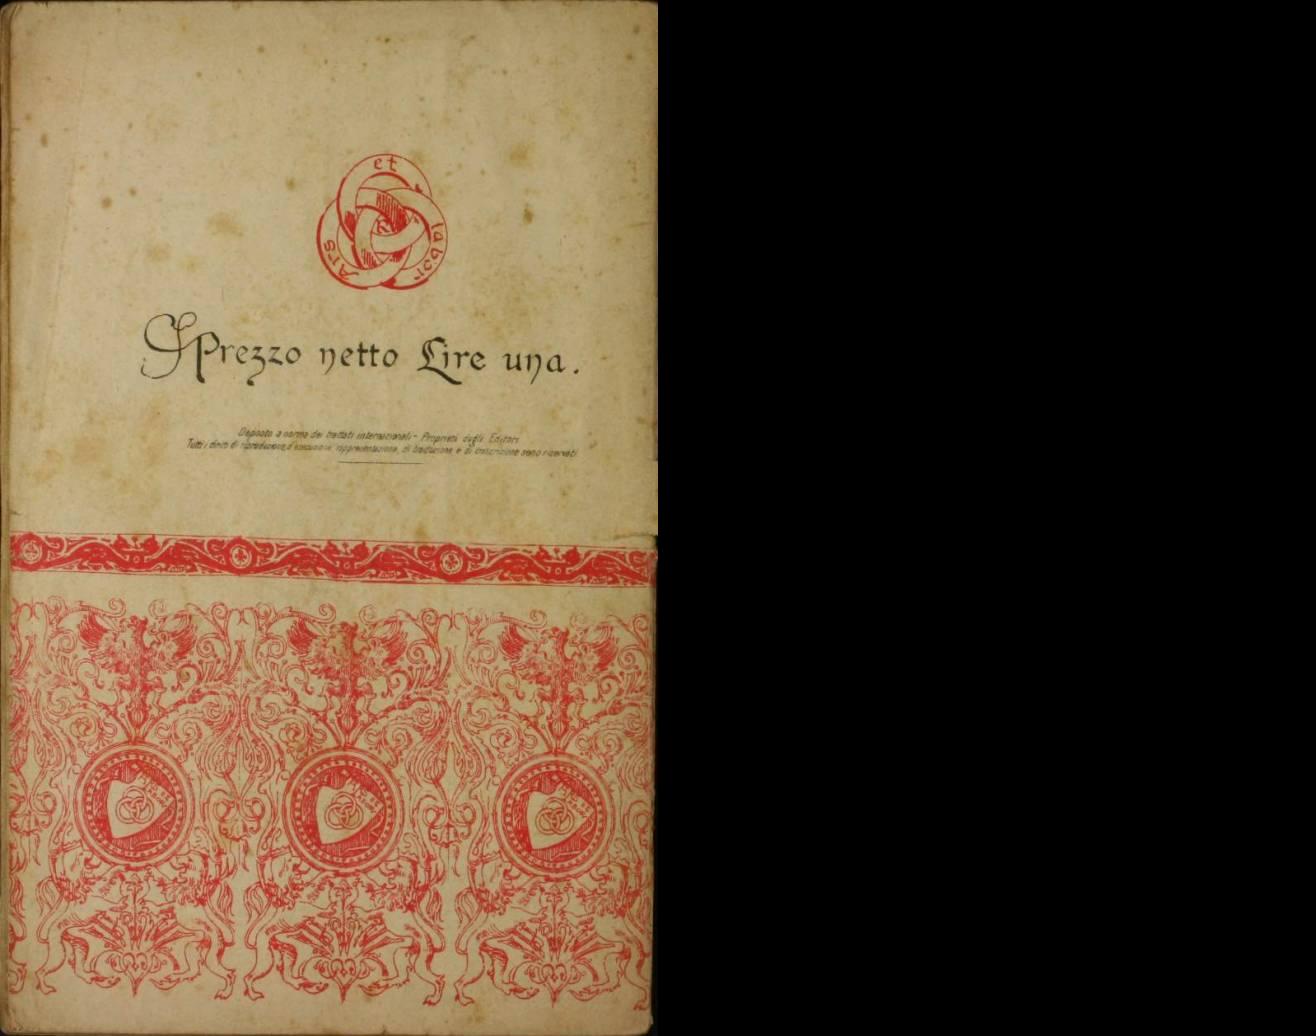 Ars et labor
R
Prezzo netto Lire una.
Deposto a norma dei trattati internazionali - Proprietà degli Editori
Tutti i diritti di riproduzione, d'esecuzione, rappresentazione, di traduzione e di trascrizione sono riservati